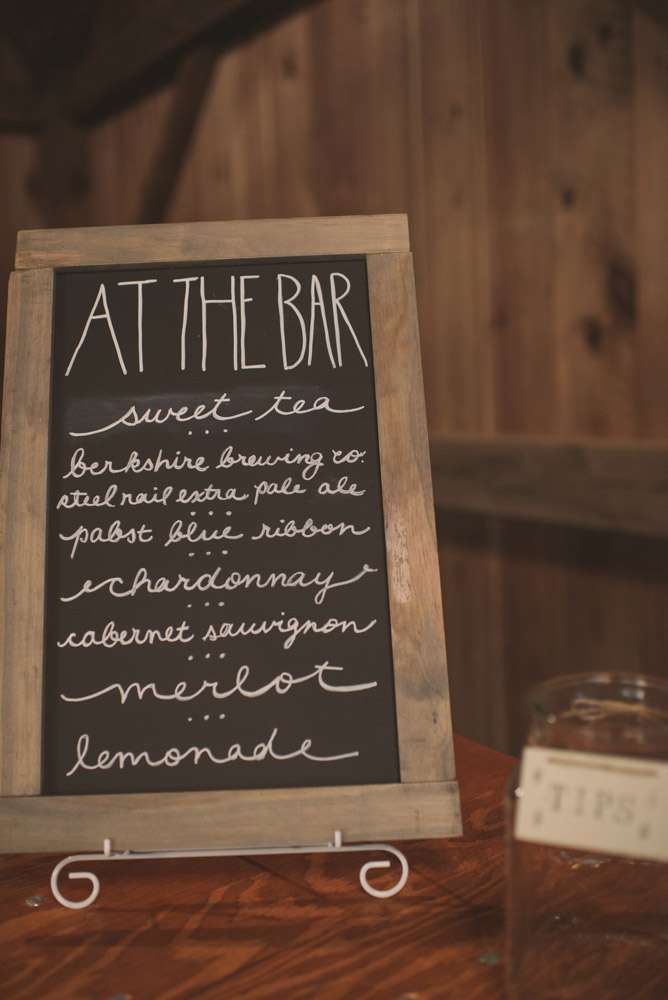 AT THE BAR
sweet tea
...
berkshire brewing co.
steel rail extra pale ale
...
pabst blue ribbon
...
chardonnay
...
cabernet sauvignon
...
merlot
...
lemonade
TIPS